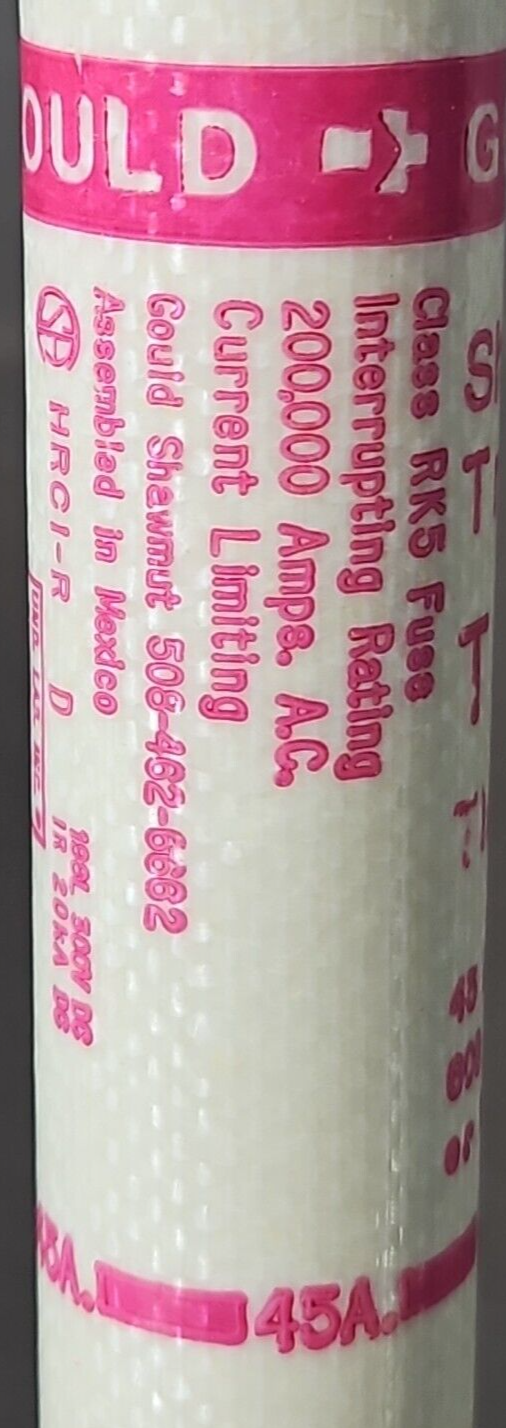 OULD G
Class RK5 Fuse
Interrupting Rating
200,000 Amps. A.C.
Current Limiting
Gould Shawmut 508-462-6662
Assembled in Mexico
HRCI-R D
300V DC
IR 20kA DC
UND. LAB. INC.
45A. 45A.